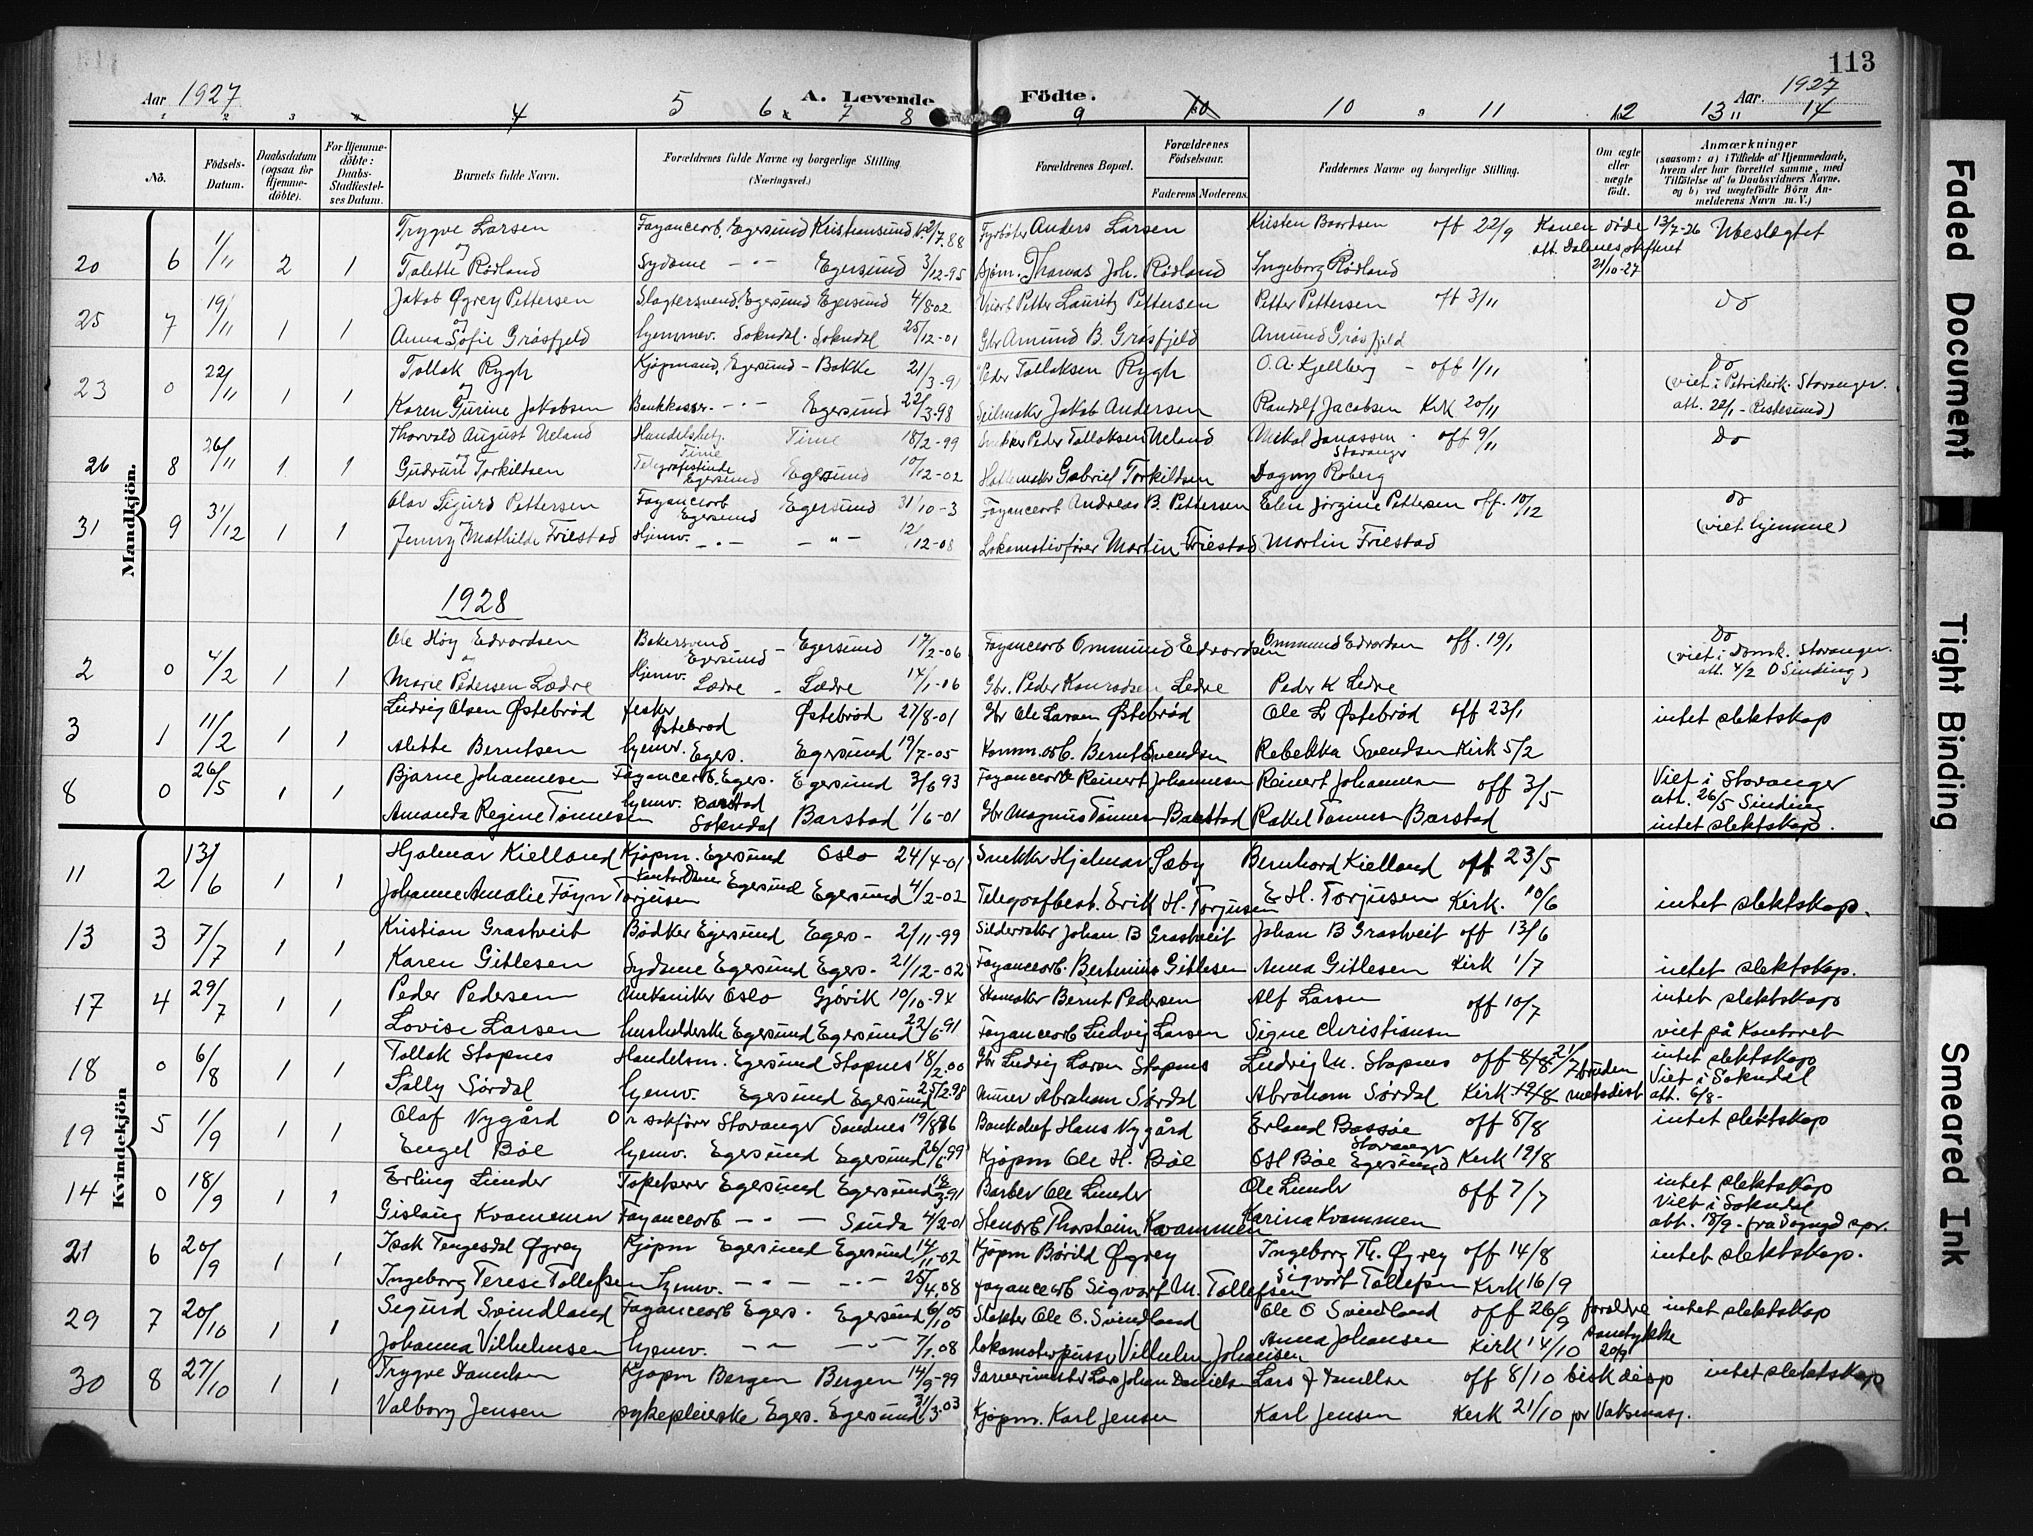 113
Aar 1927 A. Levende Födte. Aar. 1927
4 5 6 7 8 9 10 11 12 13 14
No.
Födsels-Datum.
Daabsdatum (ogsaa for Hjemme-döbte).
For Hjemme-döbte: Daabs-Stadfæstel-ses Datum.
Barnets fulde Navn.
Forældrenes fulde Navne og borgerlige Stilling. (Næringsvei.)
Forældrenes Bopæl.
Forældrenes Födselsaar.
Faderens. Moderens.
Faddernes Navne og borgerlige Stilling.
Om ægte eller uægte födt.
Anmærkninger
(saasom: a) i Tilfælde af Hjemmedaab, hvem der har forrettet samme, med Tilföielse af to Daabsvidners Navne. og b) ved uægtefödte Börn An-melderens Navn m. V.)
Mandkjön.
Trygve Larsen Fayancearb. Egersund Kristiansund 12/7.88 Fyrböter Anders Larsen Kristen Baardsen off 22/9 Konen döde 13/7-26 Ubeslægtet
att. Dalenes skifteret
20 6 1/11 2 1 og Talette Rödland Sydame -"- Egersund 3/12-95 Thomas Joh. Rödland Ingeborg Rödland 21/10-27
25 7 19/11 1 1 Jakob Øgrey Pettersen Slagtersvend, Egersund Egersund 4/8 02 Petter Lauritz Pettersen Petter Pettersen off 3/11 do
og Anna Sofie Gråsfjeld hjemmev. Sokndal. Sokndal 25/12-01 Gbr Amund B. Gråsfjeld Amund Gråsfjeld
23 0 22/11 1 1 Tollak Rygh Kjöpmand, Egersund - Bakke 21/3-91 Peder Tollaksen Rygh O. A. Kjellberg - off 1/11 do
(viet i Petrikirk. Stavanger.
og Karen Gurine Jakobsen Bankkasser. -"- Egersund 22/3-98 Seilmaker Jakob Andersen Randolf Jacobsen Kirk 20/11
26 8 26/11 1 1 Thorvald August Ueland Handelsbetj. Time Time 18/2-99 Peder Tollaksen Ueland Mikal Jonassen Stavanger off 9/11 do
og Gudrun Torkildsen Telegrafistinde Egersund Egersund 10/12-02 Gabriel Torkildsen Dagny Roberg
31 9 31/12 1 1 Olav Sigurd Pettersen Fayancearb Egersund Egersund 31/10-3 Fayancearb Andreas B. Pettersen Elen Jörgine Pettersen off. 10/12 do
og Jenny Mathilde Friestad Hjemv. -"- -"- 12/12-08 Lokomotivförer Martin Friestad Martin Friestad (viet hjemme)
1928
2 0 4/2 1 1 Ole Höy Edvardsen Bakersvend Egersund - Egersund 17/2-06 Fayancearb Ommund Edvardsen Ommund Edvardsen off. 19/1 do
(viet i Domk. Stavanger.
att. 4/2 O Sinding)
Marie Pedersen Lædre Hjemv. Lædre - Lædre 14/1-06 Gbr. Peder Konradsen Ledre Peder K Ledre
3 1 11/2 1 1 Ludvig Olsen Östebröd fisker Östebröd Östebröd 27/8-01 Gbr Ole Larsen Östebröd Ole L Östebröd off 23/1 intet slektskap
Alette Berntsen hjemv. Egers. Egersund 19/7-05 Komm. arb. Bernt Svendsen Rebekka Svendsen Kirk 5/2
8 0 26/5 1 1 Bjarne Johannesen Fayancearb. Egers. Egersund 3/6 93 Fayancearb Reinert Johannesen Reinert Johannesen off 3/5 Viet i Stavanger
att. 26/5 Sinding
Amanda Regine Tönnesen hjemv. Barstad Sokndal Barstad 1/6-01 Gbr Magnus Tönnesen Barstad Rakkel Tönnesen Barstad intet slektskap.
Kvindekjön
11 2 13/6 1 1 Hjalmar Kielland Kjöpm. Egersund Oslo 24/4-01 Snekker Hjalmar Sæby Bernhard Kielland off 23/5
Johanne Amalie Föyn Torjusen Kontordame Egersund Egersund 4/2-02 Telegrafbest. Erik H. Torjusen E H. Torjusen Kirk. 10/6 intet slektskap.
13 3 7/7 1 1 Kristian Grastveit Bödker Egersund Egers- 2/11-99 Sildevraker Johan B Grastveit Johan B Grastveit off 13/6
Karen Gitlesen Sydame Egersund Egers- 21/12-02 Fayancearb. Bertinius Gitlesen Anna Gitlesen Kirk 1/7 intet slektskap.
17 4 29/7 1 1 Peder Pedersen Mekaniker Oslo Gjövik 10/10-94 Skomaker Bernt Pedersen Alf Larsen off 10/7 intet slektskap
Lovise Larsen husholderske Egersund Egersund 22/6-91 Fayancearb Ludvig Larsen Signe Christiansen viet på Kontoret
18 0 6/8 1 1 Tollak Stapnes Handelsm. Egersund Stapnes 18/2.00 Gbr Ludvig Larsen Stapnes Ludvig M. Stapnes off 21/7 bruden intet slektskap
Sally Sördal hjemv. Egersund Egersund 25/12.98 Murer Abraham Sördal Abraham Sördal metodist Viet i Sokndal
att. 6/8-
19 5 1/9 1 1 Olaf Nygård Or sakförer Stavanger Sandnes 19/8 86 Bankchef Hans Nygård Erland Bassöe Stavanger off 8/8 intet slektskap
Engel Böe hjemv. Egersund Egersund 26/6 99 Kjöpm Ole H. Böe O H Böe Egersund Kirk 12/8
14 0 18/9 1 1 Erling Lunder Tapetserer Egersund Egersund 18/3-91 Barber Ole Lunder Ole Lunder off 7/7 intet slektskap
Viet i Sokndal
Gislaug Kvammen Fayancearb -"- Sauda 4/2-01 Stenarb Thorstein Kvammen Karina Kvammen att. 18/9-
21 6 20/9 1 1 Isak Tengesdal Øgrey Kjöpm Egersund Egersund 14/11-02 Kjöpm Börild Øgrey Ingeborg Th. Øgrey off 14/8 intet slektskap.
Ingeborg Terese Tollefsen hjemv. -"- -"- 25/4.08 fayancearb Sigvart M. Tollefsen Sigvart Tollefsen Kirk 16/9
29 7 20/10 1 1 Sigurd Svindland Fayancearb Egers. Egersund 6/10 05 Slakter Ole O. Svindland Ole O Svindland off 26/9 foreldre intet slektskap
Johanna Vilhelmsen hjemv. -"- -"- 7/1.08 lokomotivpusser Vilhelm Johansen Anna Johansen Kirk 14/10 samtykke 20/9
30 8 27/10 1 1 Trygve Danielsen Kjöpm Bergen Bergen 14/9-99 Garverimester Lars Johan Danielsen Lars J Danielsen off 8/10 bisk disp intet slektskap
Valborg Jensen sykepleierske Egers. Egersund 31/3.03 Kjöpm. Karl Jensen Karl Jensen Kirk 21/10
Faded Document
Tight Binding
Smeared Ink